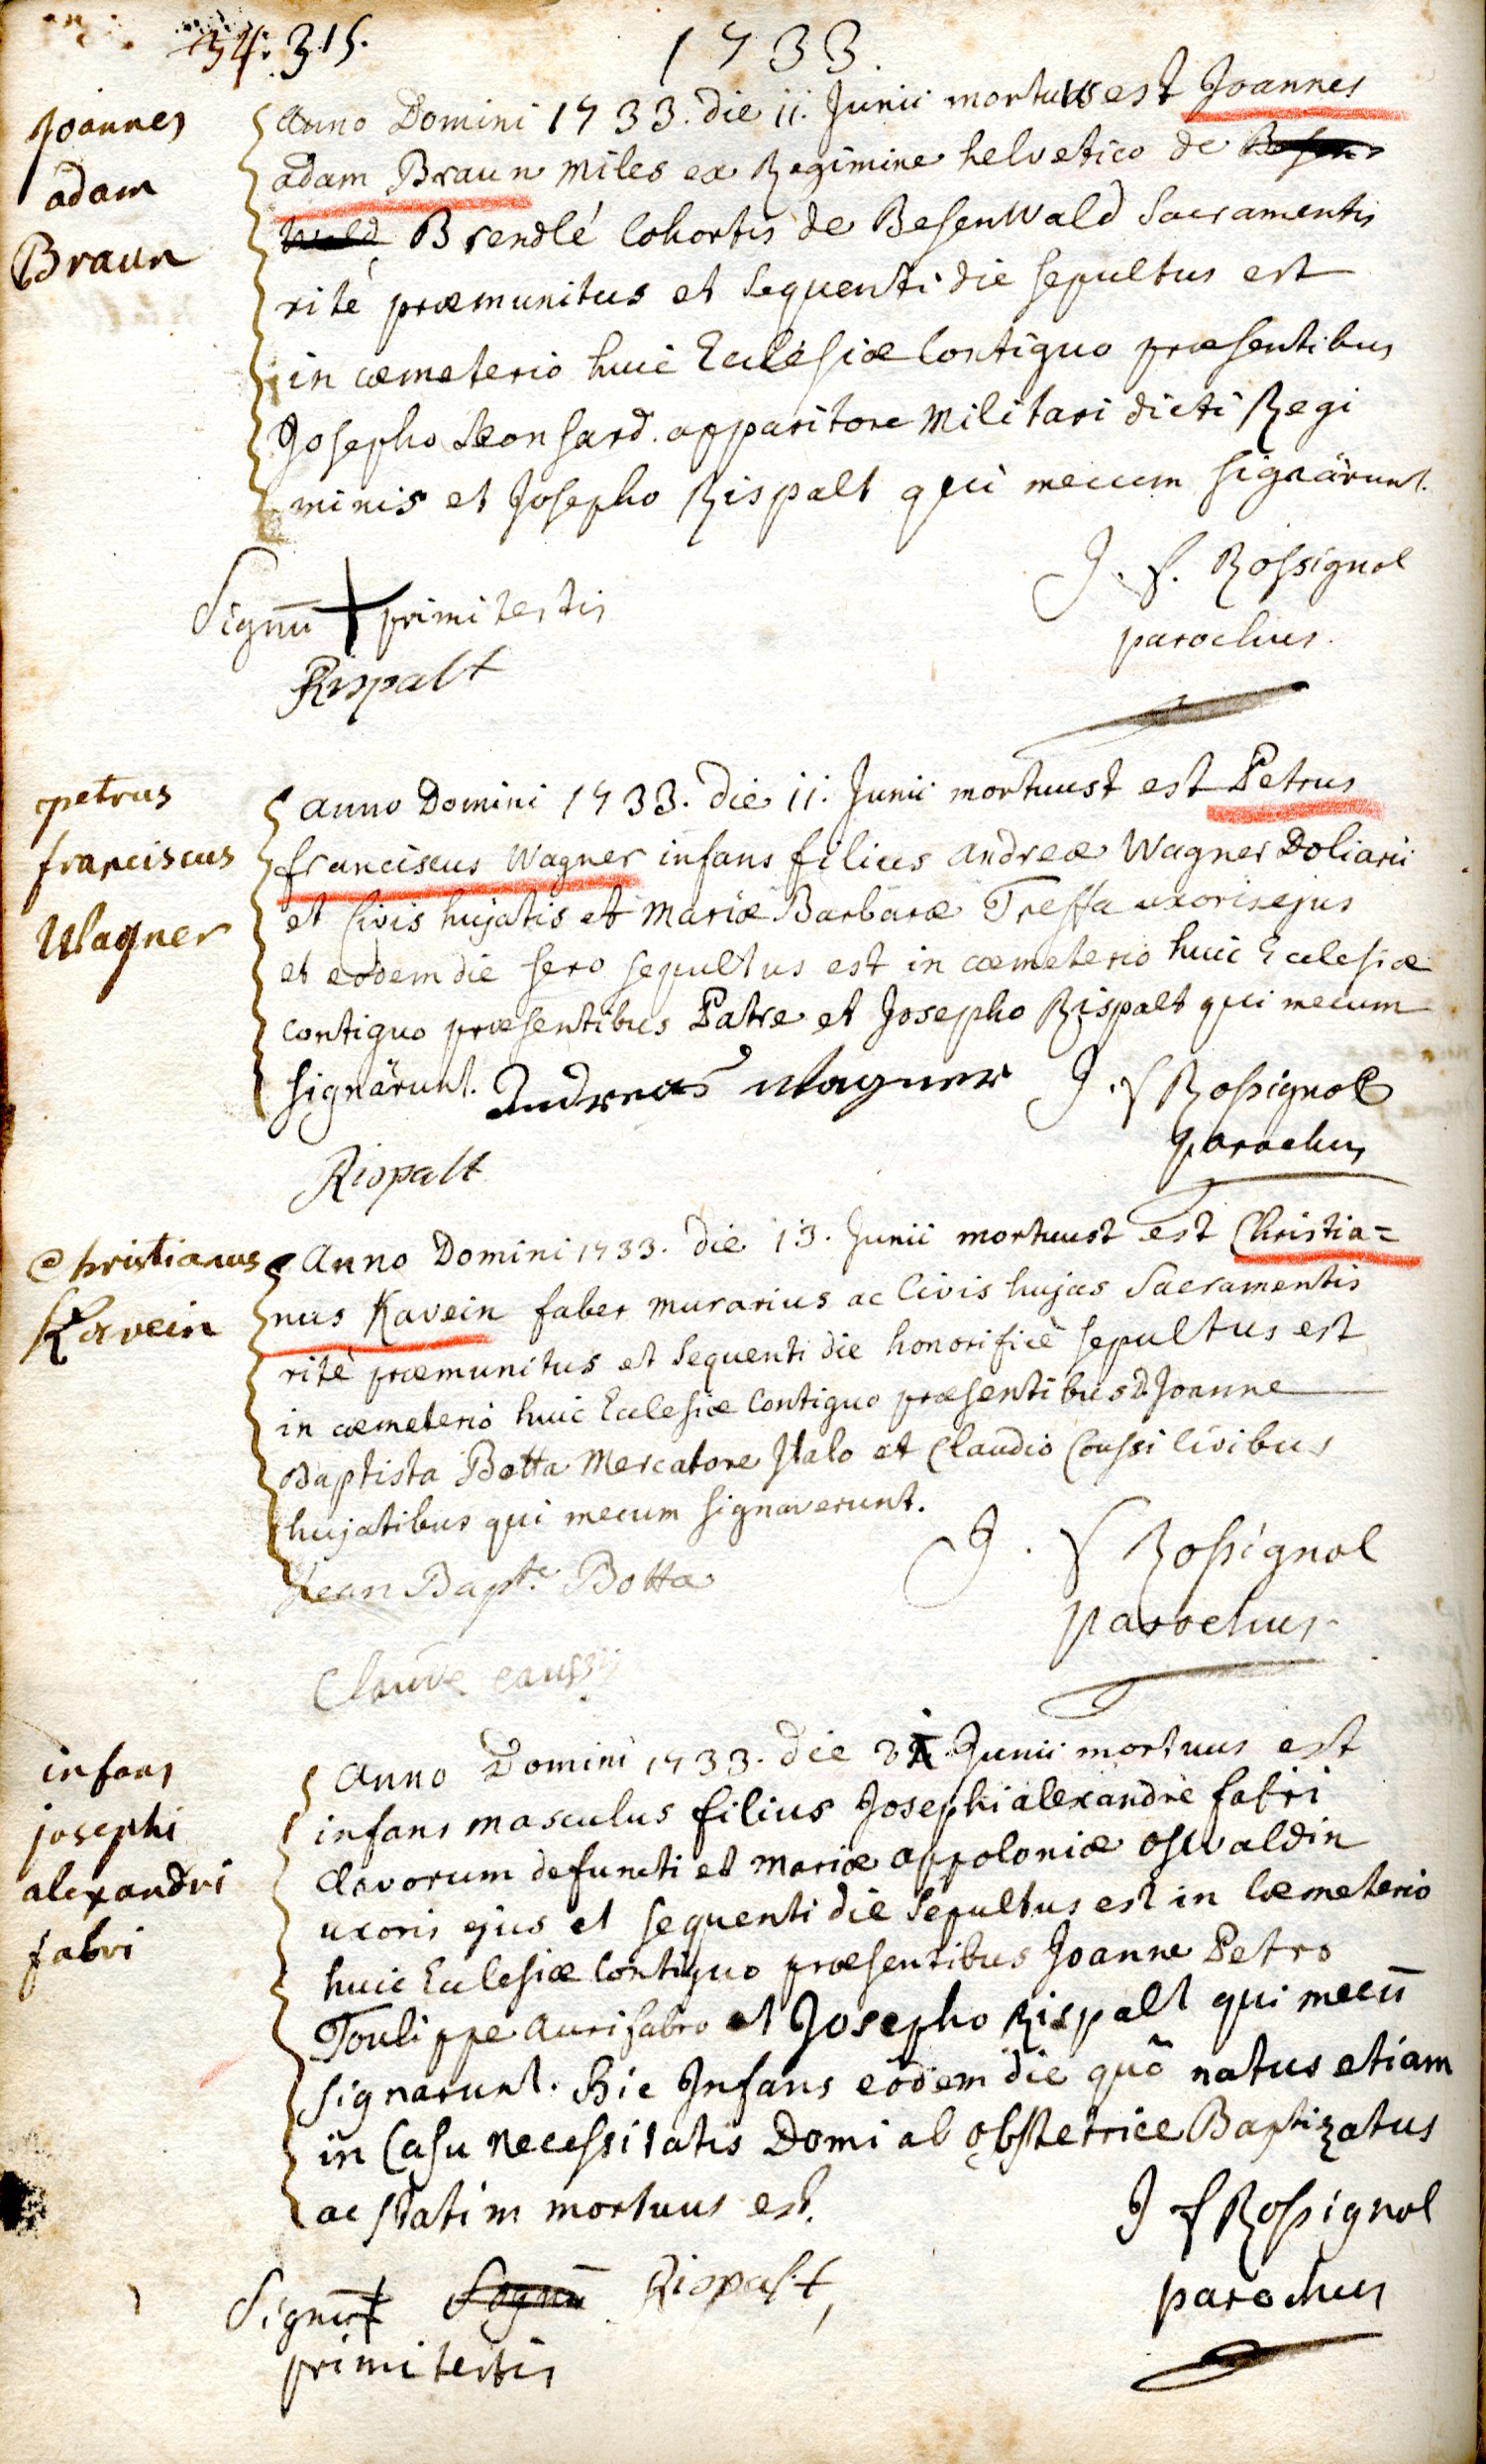 34. 315.
1733.
Joannes
adam
Braun
Anno Domini 1733. die 11. Junii mortuus est Joannes
adam Braun miles ex Regimine helvetico de Besen
wald Brendlé Cohortis de BesenWald Sacramentis
rité præmunitus et Sequenti die sepultus est
in cæmeterio huic Ecclesiæ Contiguo præsentibus
Josepho Leonhard. apparitore Militari dicti Regi
minis et Josepho Rispalt qui mecum signârunt.
J. f. Rossignol
parochus.
Signū + primi testis
Rispalt
petrus
franciscus
Wagner
Anno Domini 1733. die 11. Junii mortuust est Petrus
franciscus Wagner infans filius andreæ Wagner Doliarii
et Civis hujatis et Mariæ Barbaræ Treffa uxoris ejus
et eodem die sero sepultus est in cæmeterio huic Ecclesiæ
Contiguo præsentibus Patre et Josepho Rispalt qui mecum
signârunt. Andreas Wagner J. f Rossignol
parochus
Rispalt
Christianus
Kavein
Anno Domini 1733. die 13. Junii mortuust est Christia=
nus Kavein faber murarius ac Civis hujas Sacramentis
rité præmunitus et Sequenti die honorificè sepultus est
in cæmeterio huic Ecclesiæ Contiguo præsentibus D. Joanne
Baptista Botta Mercatore Italo et Claudio Coussi Civibus
hujatibus qui mecum signaverunt.
J. f Rossignol
parochus
Jean Bapte. Botta
Clauve caussi
infans
josephi
alexandri
fabri
Anno Domini 1733. die Junii mortuus est
infans masculus filius Josephi alexandre fabri
clavorum defuncti et Mariæ appoloniæ oswaldin
uxoris ejus et sequenti die Sepultus est in Cæmeterio
huic Ecclesiæ Contiguo præsentibus Joanne Petro
Toulippe Aurifabro et Josepho Rispalt qui mecū
signarunt. Hic Infans eôdem die quô natus etiam
in Casu necessitatis Domi ab obstetrice Baptizatus
ac statim mortuus est.
J f Rossignol
parochus
Signū + Signū Rispalt
primi testis